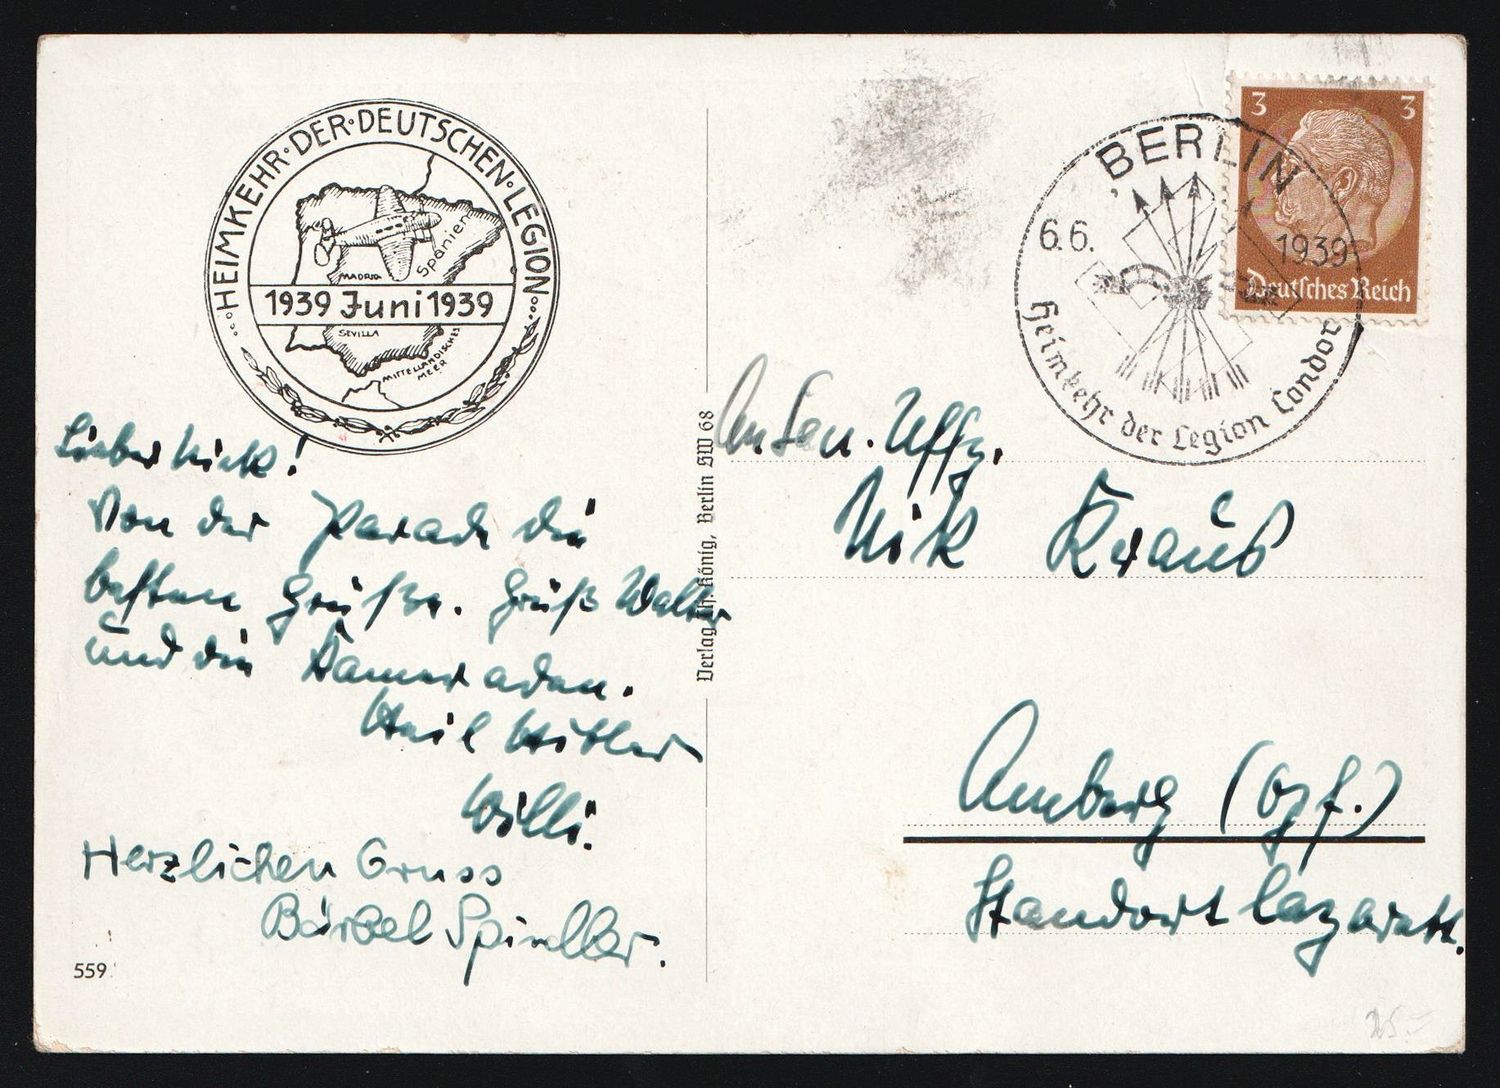 HEIMKEHR · DER · DEUTSCHEN · LEGION
Spanien
MADRID
1939 Juni 1939
SEVILLA
MITTELLÄNDISCHES
MEER
Lieber Nick!
Von der Parade die
besten Grüße. Grüß Walter
und die Kameraden.
Heil Hitler
Willi.
Herzlichen Gruss
Bärbel Spindler.
559
Verlag König, Berlin SW 68
3 3
Deutsches Reich
BERLIN
6.6. 1939
Heimkehr der Legion Condor
An den Uffz.
Nik Kraus
Amberg (Opf.)
Standortlazarett.
25.-